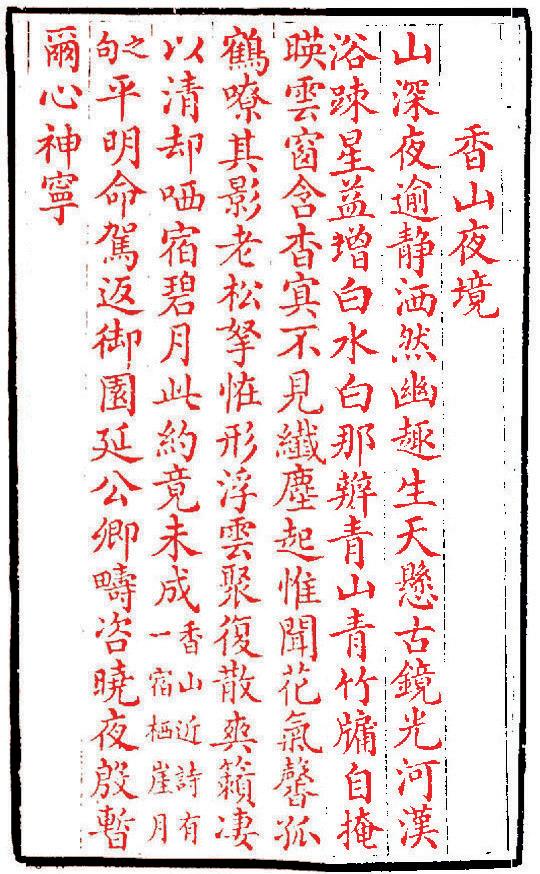 香山夜境
山深夜逾静洒然幽趣生天懸古鏡光河漢
浴踈星益增白水白那辧青山青竹牗自掩
暎雲窗含杳㝠不見纎塵起惟聞花氣馨孤
鶴嘹其影老松拏恠形浮雲聚復散爽籟凄
以清却哂宿碧月此約竟未成香山近詩有一宿栖崖月
之句平明命駕返御園延公卿疇咨曉夜殷暫
爾心神寧